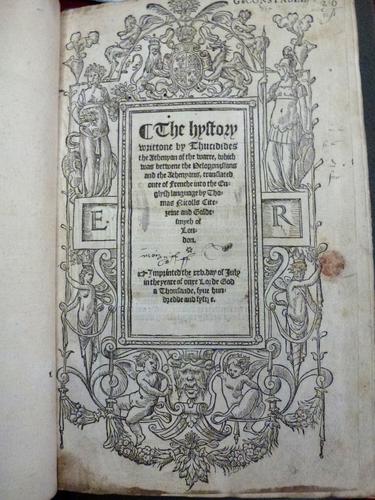 The hystory
writtone by Thucidides
the Athenyan of the warre, which
was betwene the Peloponesians
and the Athenyans, translated
oute of Frenche into the En-
glysh language by Tho-
mas Nicolls Cite-
zeine and Golde-
smyth of
Lon-
don.
Imprinted the xxv. day of July
in the yeare of oure Lorde God
a Thousande, fyue hun-
dredde and fyftye.
E R